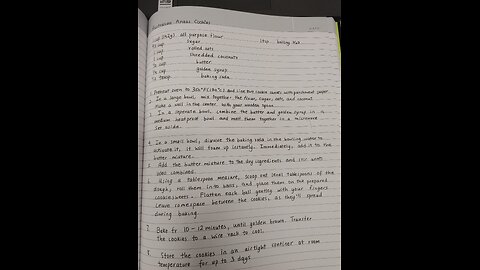 Australian Anzac Cookies
1 cup (142g) all purpose flour
sugar
1 tsp boiling H2O
1 cup rolled oats
1 cup shredded coconuts
butter
golden syrup
baking soda
1. Preheat oven to 350°F (180°C) and line two cookie sheets with parchment paper.
2. In a large bowl, mix together the flour, sugar, oats, and coconut
Make a well in the center with your wooden spoon.
3. In a seperate bowl, combine the butter and golden syrup in a
medium heatproof bowl and melt them together in a microwave
Set aside.
4. In a small bowl, dissolve the baking soda in the boiling water to
activate it, it will foam up instantly. Immediately, add it to the
butter mixture.
5. Add the butter mixture to the dry ingredients and stir until
well combined.
6. Using a tablespoon measure, scoop out level tablespoons of the
dough, roll them into balls, and place them on the prepared
cookie sheets. Flatten each ball gently with your fingers
Leave some space between the cookies, as they'll spread
during baking.
7. Bake for 10-12 minutes, until golden brown. Transfer
the cookies to a wire rack to cool.
8. Store the cookies in an airtight container at room
temperature for up to 3 days